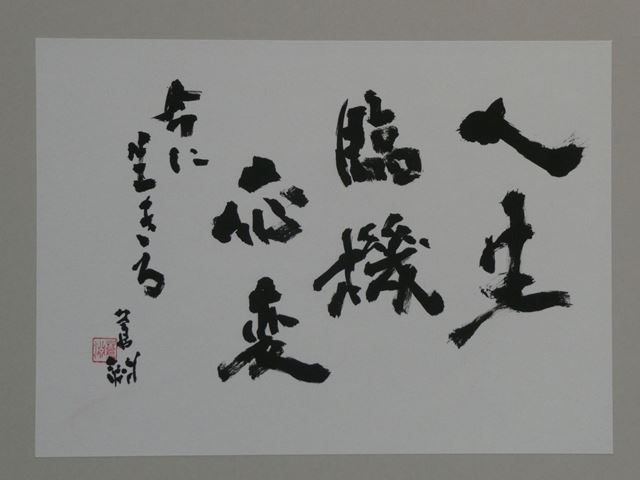 人生
臨機
応変
に
生きる